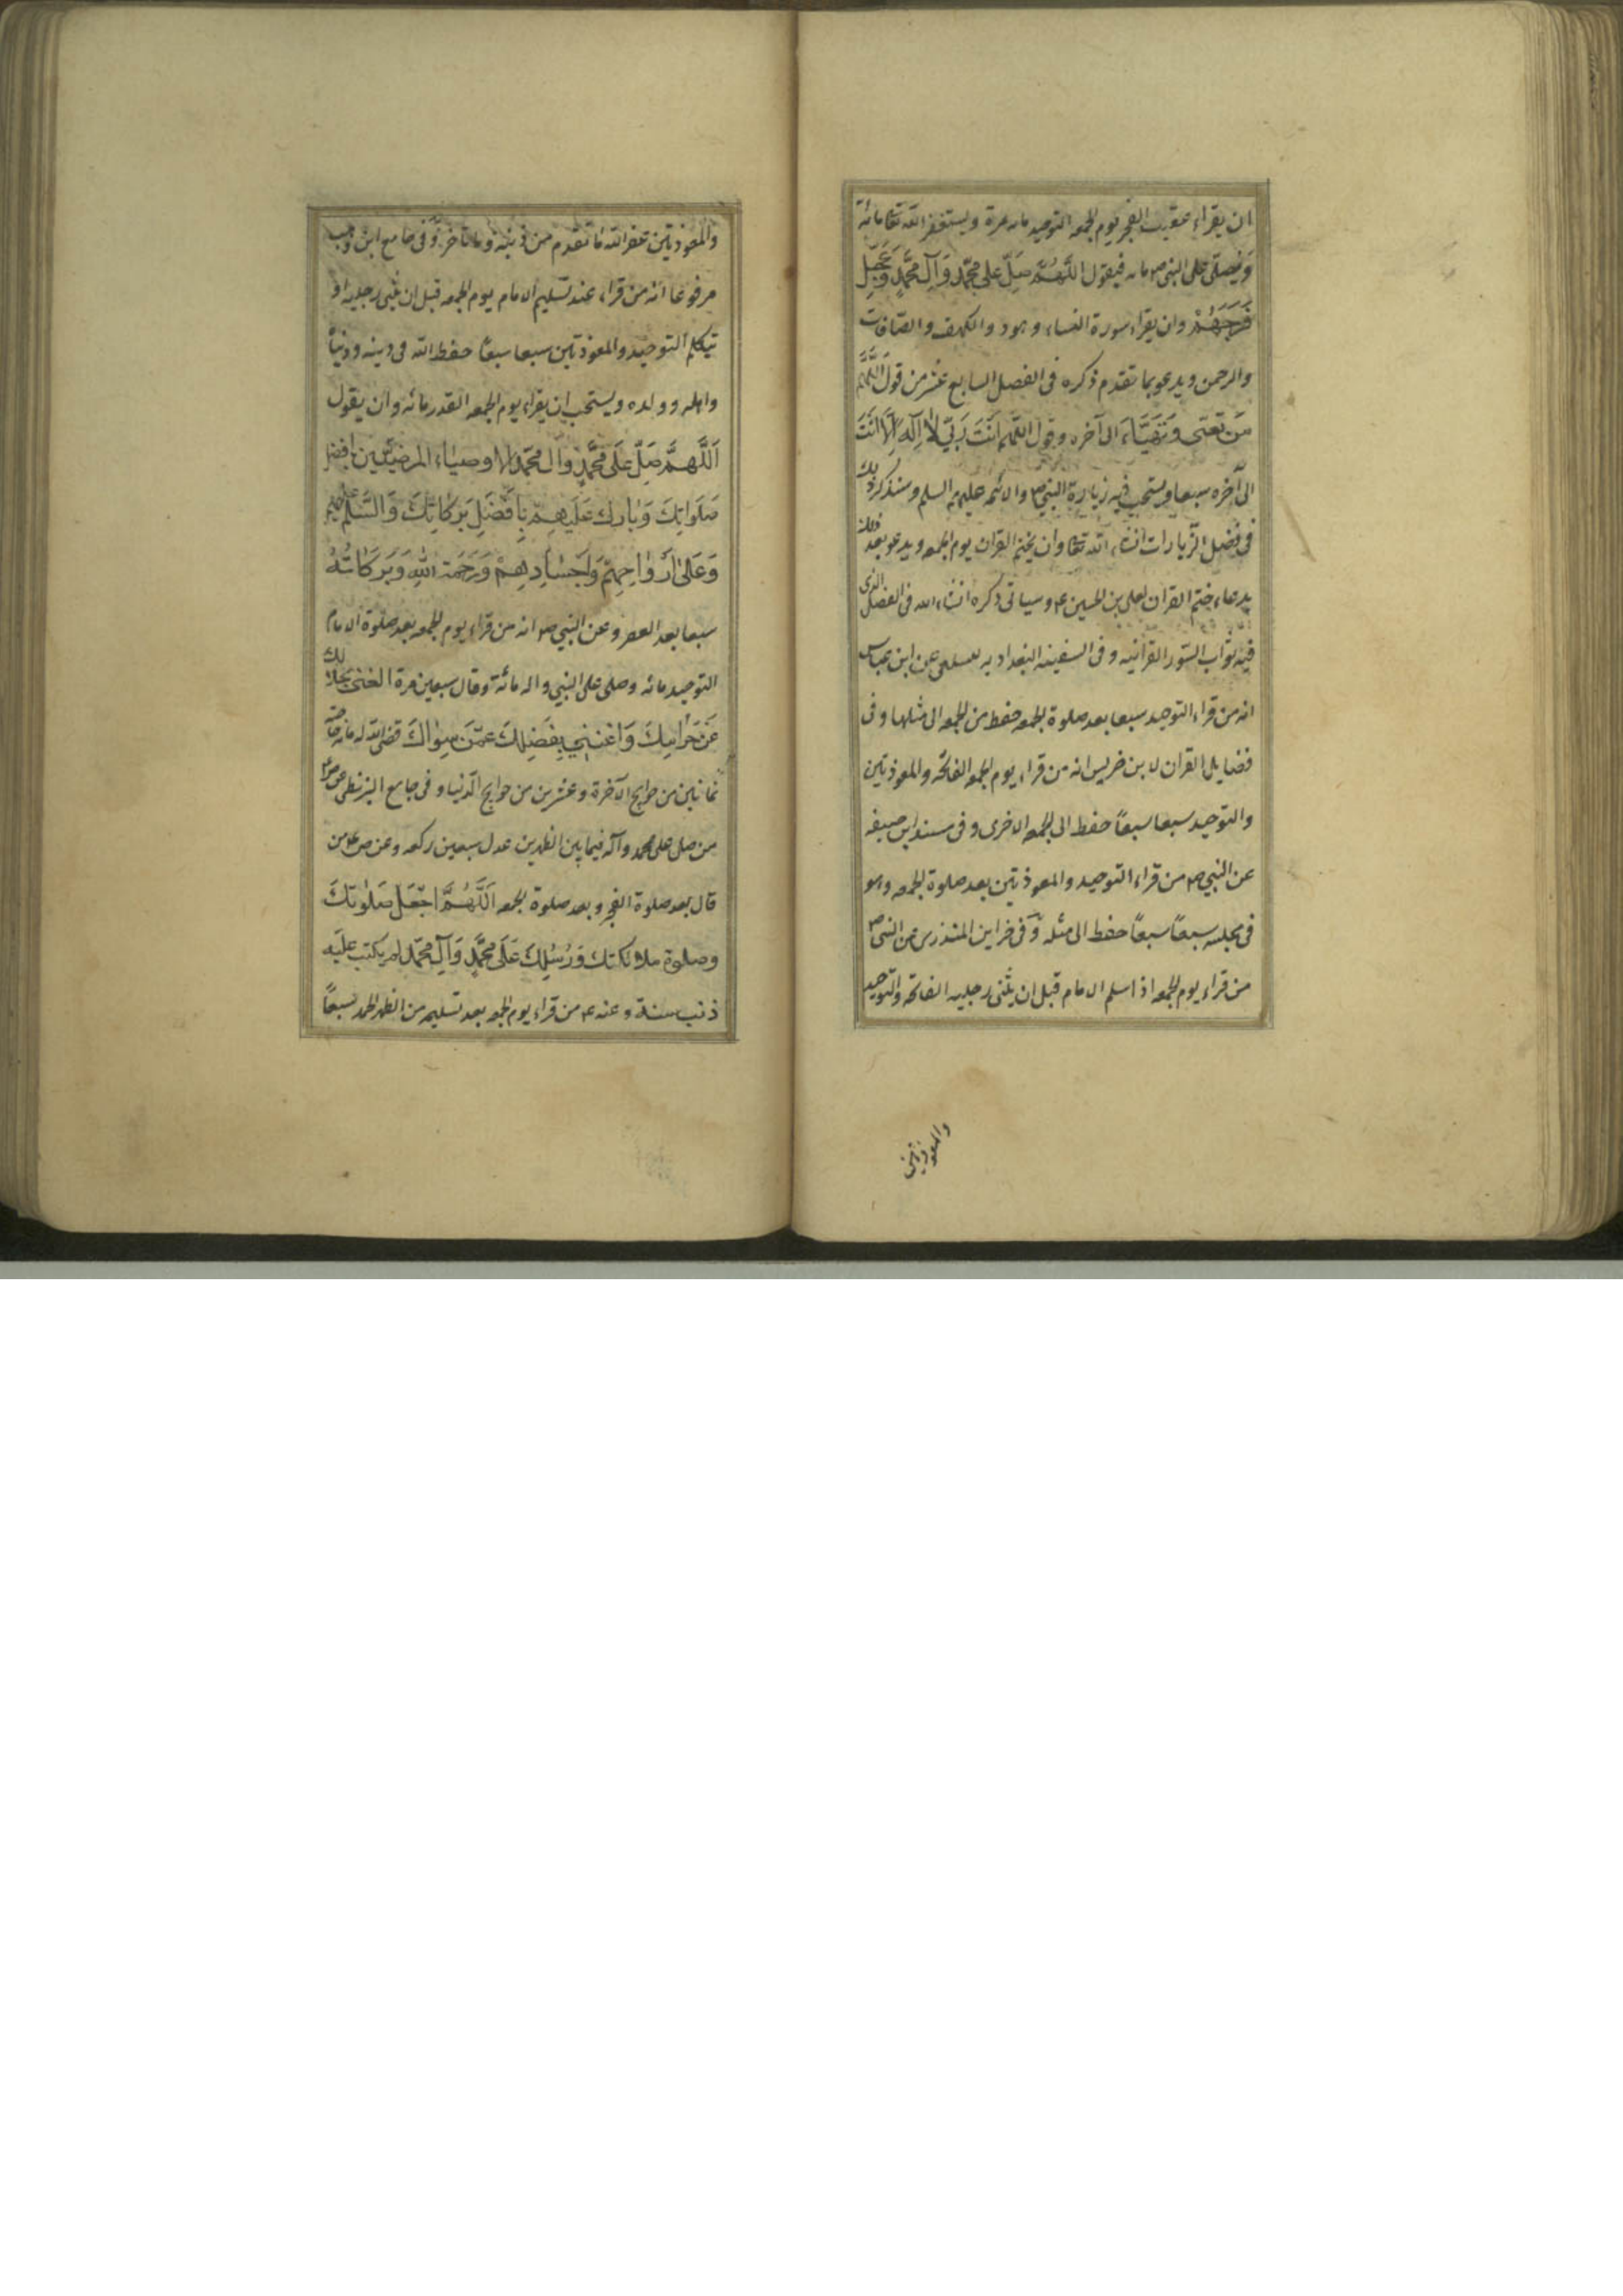 ان يقراء عقيب الفجر يوم الجمعه التوحيد مائه مرة ويستغفر الله تعا مائة
ويصلى على النبى ص مائه فيقول اللَّهُمَّ صَلِّ على مُحَمَّدٍ وَآلِ مُحَمَّدٍ وَعَجِّل
فَرَجَهُمْ وان يقراء سورة النساء وهود والكهف والصّافات
والرحمن ويدعو بما تقدم ذكره فى الفصل السابع عشر من قول اللَّهُمَّ
مَن تعبّى وَتَهَيَّاءَ الى آخره وقول اللهم اَنْتَ رَبّي لا اِلَه اِلّا اَنْتَ
الى آخره سبعا ويستحب فيه زيارة النبى ص والائمه عليهم السلم وسنذكر ذلك
فى فصل الزيارات انشاء الله تعا وان يختم القران يوم الجمعه ويدعو بعد ذلك
بدعاء ختم القران لعلى بن الحسين ع وسياتى ذكره انشاء الله فى الفصل الذى
فيه ثواب السّور القرانيه وفى السفينه البغداديه للسلفى عن ابن عباس
انه من قراء التوحيد سبعا بعد صلوة الجمعه حفظ من الجمعه الى مثلها وفى
فضايل القران لابن ضريس انه من قراء يوم الجمعه الفاتحه والمعوذتين
والتوحيد سبعا سبعاً حفظ الى الجمعه الاخرى وفى مسند ابى حنيفه
عن النبى ص من قراء التوحيد والمعوذتين بعد صلوة الجمعه وهو
فى مجلسه سبعاً سبعاً حفظ الى مثله وَفى خزاين المنذرى عن النبى ص
من قراء يوم الجمعه اذا سلم الامام قبل ان يثنى رجليه الفاتحه والتوحيد
والمعوذتين
والمعوذتين غفر الله ما تقدم من ذنبه وما تاخر وَفى جامع ابن وهب
مرفوعا انه من قراء عند تسليم الامام يوم الجمعه قبل ان يثنى رجليه او
يتكلم التوحيد والمعوذتين سبعا سبعاً حفظ الله فى دينه ودنياه
واهله وولده ويستحب ان يقراء يوم الجمعه القدر مائه وان يقول
اَللّهُمَّ صَلِّ عَلَى مُحَمَّدٍ وَآل محمّد الاوصياء المرضيّين بافضل
صَلَوَاتِكَ وَبارِك عَلَيهِم بِاَفْضَلِ بَرَكاتِكَ وَالسَّلم عليهم
وَعَلَى اَرْوَاحِهِمْ وَاَجْسَادِهِمْ وَرَحْمَة اللهِ وَبَرَكَاتُهُ
سبعا بعد العصر وعن النبى ص انه من قراء يوم الجمعه بعد صلوة الامام
التوحيد مائه وصلى على النبى واله مائة وقال سبعين مرة اكفنى بحلالك
عَن حَرَامِكَ وَاغنِنِي بِفَضلِكَ عَمَّن سِوَاكَ قضى الله له مائه حاجه
ثمانين من حوايج الآخرة وعشرين من حوايج الدّنيا وفى جامع البزنطى عن ص ع
من صلى على محمد وآله فيما بين الظهرين عدل سبعين ركعه وعن ص ع من
قال بعد صلوة الفجر وبعد صلوة الجمعه اَللَّهُمَّ اجْعَل صَلَوَاتِكَ
وصلوة ملائكتك وَرُسُلِكَ عَلَى مُحَمَّدٍ وَآلِ مُحَمّد لم يكتب عليه
ذنب سنة وعنه ع من قراء يوم الجمعه بعد تسليمه من الظهر الحمد سبعاً